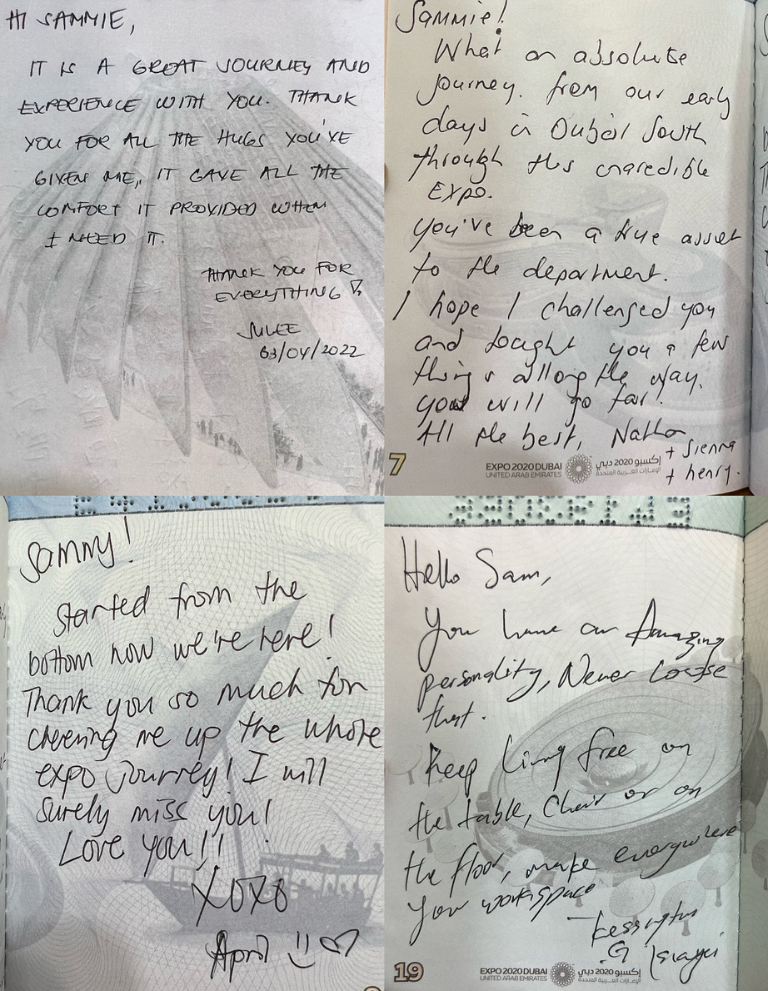 HI SAMMIE,
IT IS A GREAT JOURNEY AND
EXPERIENCE WITH YOU. THANK
YOU FOR ALL THE HUGS YOU'VE
GIVEN ME, IT GAVE ALL THE
COMFORT IT PROVIDED WHEN
I NEED IT.
THANK YOU FOR
EVERYTHING
JULEE
03/04/2022
Sammie!
What an absolute
journey. from our early
days in Dubai South
through this incredible
EXPO.
you've been a true asset
to the department.
I hope I challenged you
and taught you a few
things allong the way.
you will go far!
All the best,
+ Sienna
+ henry.
7
EXPO 2020 DUBAI
UNITED ARAB EMIRATES
إكسبو 2020 دبي
الإمارات العربية المتحدة
Sammy!
Started from the
bottom now we're here!
Thank you so much for
cheering me up the whole
expo journey! I will
surely miss you!
Love you!!
XOXO
April
Hello Sam,
You have an Amazing
personality, Never Loose
that.
Keep living free on
the table, Chair or on
the floor, make everywhere
your workspace
19
EXPO 2020 DUBAI
UNITED ARAB EMIRATES
إكسبو 2020 دبي
الإمارات العربية المتحدة